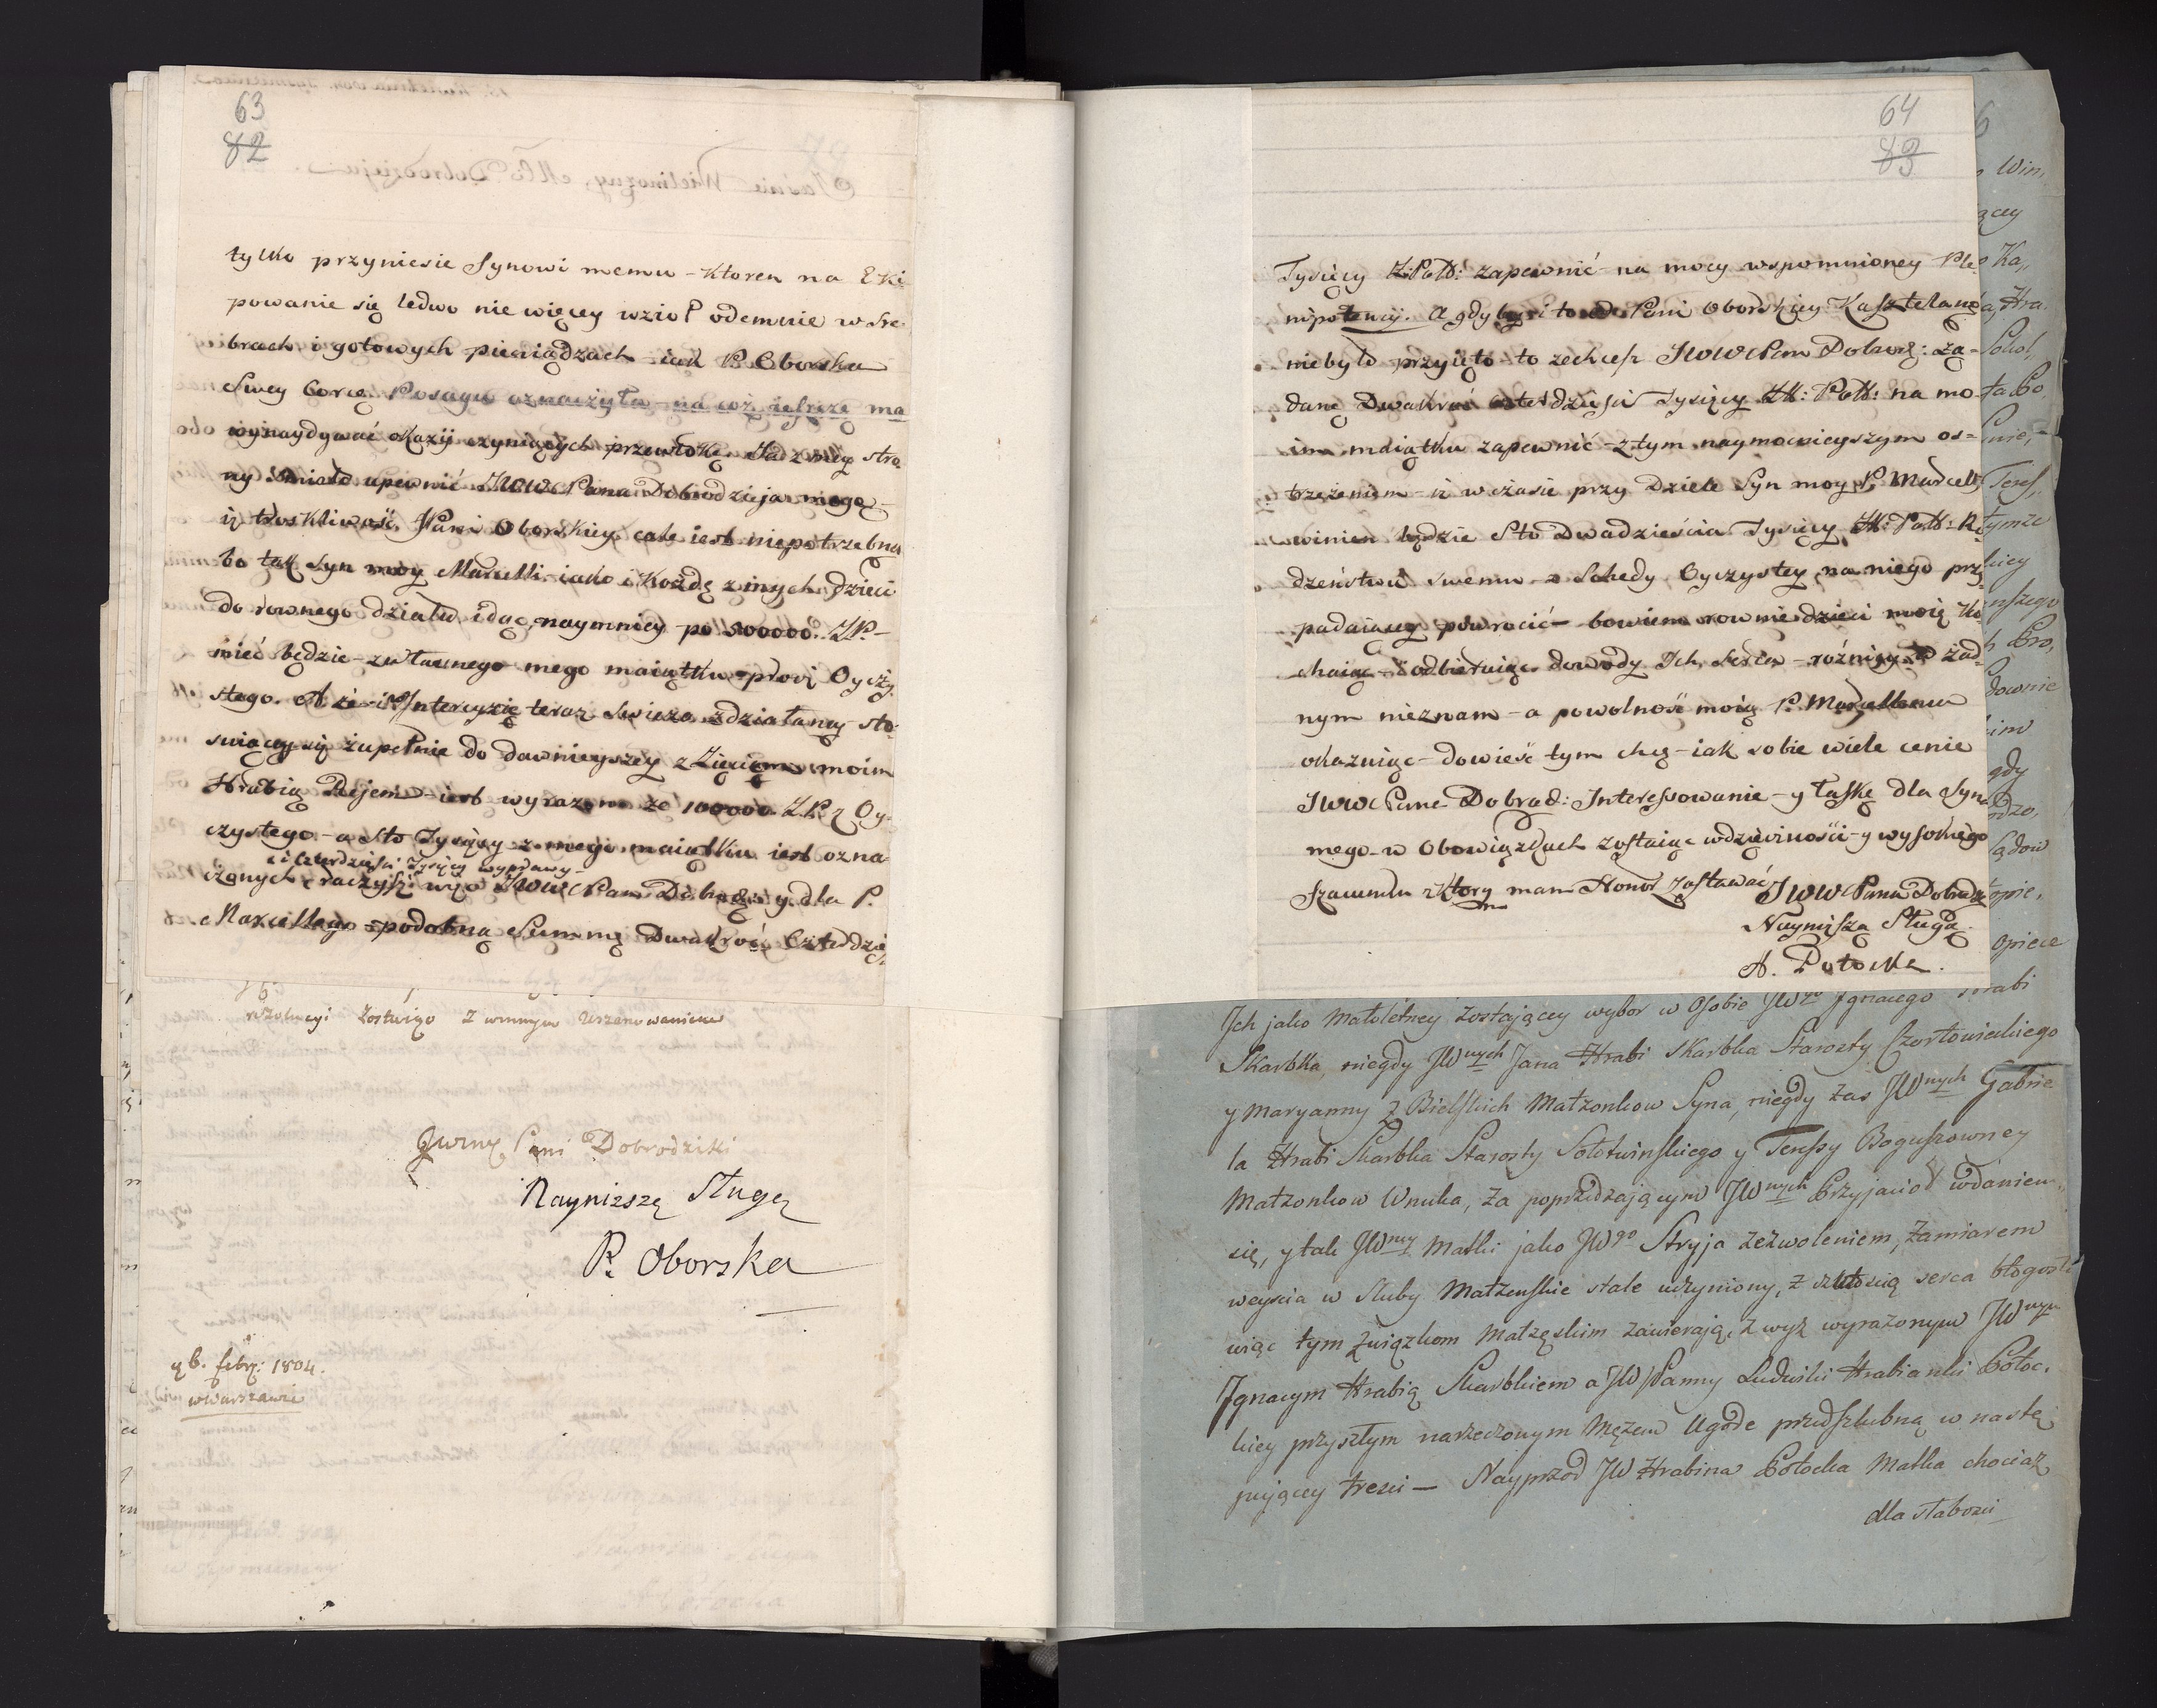 63
82
tylko przyniesie Synowi memu - Ktoren na Eki
powanie się ledwo nie więcey wzioł odemnie w Sre
brach i gotowych pieniądzach - iak P. Oborska
Swey Corce Posagu oznaczyła - na coż ieszcze ma
wynaydywać okazij czyniących przewłokę. Ja z mey stro
ny Smiało upewnić JWW Pana Dobrodzieja mogę -
iż troskliwość JPani Oborskiey cale iest niepotrzebna
bo tak Syn moy Marcelli - iako i Kożde z innych dzieci
do rownego działu idąc, naymniey po 500000. ZP. -
mieć będzie - z własnego mego maiątku - procz Oyczy
stego. A że i Intercyzie teraz swieżo zdziałaney sto
suiącey się zupełnie do dawnieyszey z Zięciem moim
Hrabią Rejem - iest wyrażone że 100000 Z.P. z Oy-
czystego - a sto Tysięcy z mego maiątku iest ozna-
i czterdzieści Tysięcy wyprawy -
czonych - raczysz więc JWW Pan Dobrodziey dla P.
Marcellego podobną Summę Dwakroć Czterdzie
rezolucyi zostaięc z winnym Uszanowaniem
JWney Pani Dobrodziki
Nayniższą Sługą
P. Oborska
46. febr: 1804.
w Warszawie
64
83
Tysięcy Z:Pol: zapewnić - na mocy wspomnioney Ple
nipotencij. A gdyby i to od Pani Oborskiey Kasztelanowey
nie było przyięto - to zechcesz JWW Pan Dobrodz: żą-
dane Dwakroć czterdzieści Tysięcy Zł: Pol: na mo-
im maiątku zapewnić - z tym naymocnieyszym os=
trzeżeniem - iż w czasie przy Dziele Syn moy P. Marcelli
winien będzie Sto Dwadzieścia Tysięcy Zł: Pol: Ro
dzeństwu swemu z Schedy Oyczystey na niego przy
padaiącey powrocić - bowiem rownie dzieci moie Ko
chaiąc - i odbieraiąc dowody Ich Serca - rożnicy w żad
nym nieznam - a powolność moią P. Marcellemu
okazuiąc - dowieść tym chcę - iak sobie wiele cenie
JWW Pana Dobrod: Interessowanie - y łaskę dla Syna
mego - w Obowiązkach zostaiąc wdzięczności - y wysokiego
Szacunku z Ktorym mam Honor zostawać
JWW Pana Dobrodz
Nayniższą Sługą.
A. Potocka.
Ich jako Małoletney zostającey wybor w Osobie JWgo Ignacego Hrabi
Skarbka, niegdy JWnych Jana Hrabi Skarbka Starosty Czortowieckiego
y Maryanny z Bielskich Małzonkow Syna, niegdy zas JWnych Gabrie
la Hrabi Skarbka Starosty Sołotwinskiego y Teressy Boguszowney
Małzonkow Wnuka, za poprzedzającym JWnych Przyjacioł wdaniem
się, y tak JWney Matki jako JWgo Stryja zezwoleniem, zamiarem
weyscia w Sluby Małzenskie stale uczyniony, z czułoscią serca błogosła
wiąc tym związkom Małzęskim zawierają, z wyz wyrazonym JWnym
Ignacym Hrabią Skarbkiem a JWPanny Ludwiki Hrabianki Potoc,
kiey przyszłym narzeczonym Mężem Ugodę przedszlubną w nastę
pującey tresci - Nayprzod JW Hrabina Potocka Matka chociaz
dla słabosci